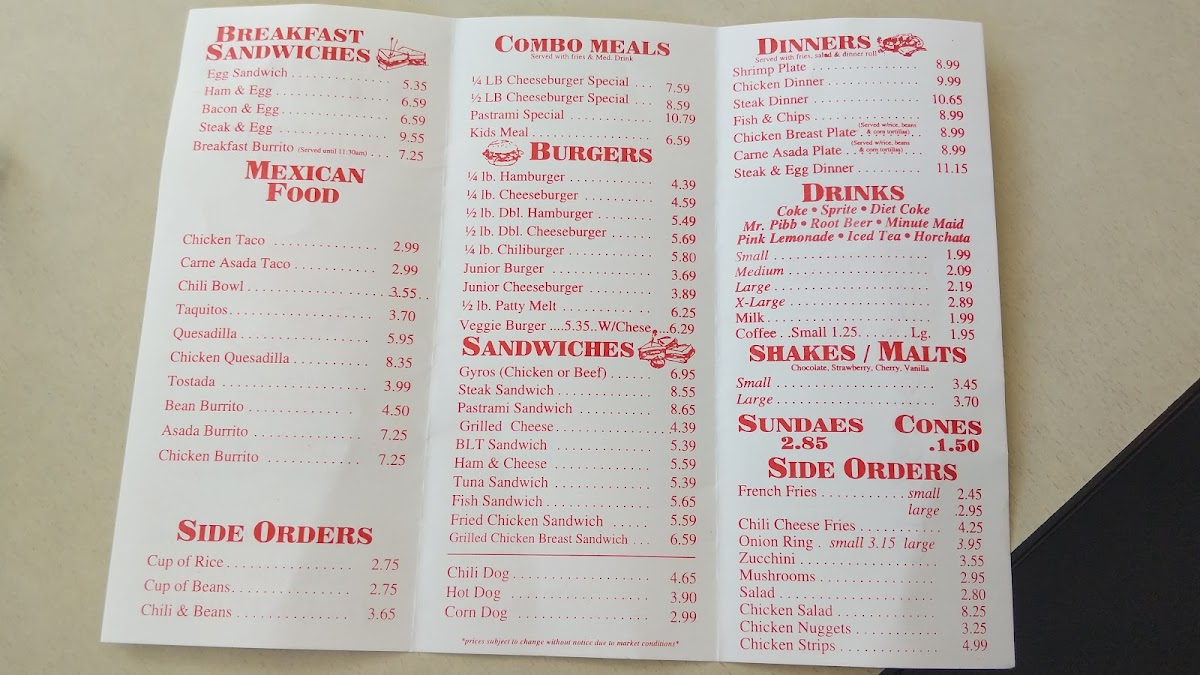 BREAKFAST
SANDWICHES
Egg Sandwich . . . . . . . . . . . . . 5.35
Ham & Egg . . . . . . . . . . . . . . . 6.59
Bacon & Egg . . . . . . . . . . . . . . 6.59
Steak & Egg . . . . . . . . . . . . . . 9.55
Breakfast Burrito (Served until 11:30am) . . . 7.25
MEXICAN
FOOD
Chicken Taco . . . . . . . . . . . . . 2.99
Carne Asada Taco . . . . . . . . . . 2.99
Chili Bowl . . . . . . . . . . . . . . . . 3.55 . .
Taquitos . . . . . . . . . . . . . . . . . 3.70
Quesadilla . . . . . . . . . . . . . . . 5.95
Chicken Quesadilla . . . . . . . . . 8.35
Tostada . . . . . . . . . . . . . . . . . 3.99
Bean Burrito . . . . . . . . . . . . . 4.50
Asada Burrito . . . . . . . . . . . . 7.25
Chicken Burrito . . . . . . . . . . . 7.25
SIDE ORDERS
Cup of Rice . . . . . . . . . . . . . . 2.75
Cup of Beans . . . . . . . . . . . . . 2.75
Chili & Beans . . . . . . . . . . . . 3.65
COMBO MEALS
Served with fries & Med. Drink
¼ LB Cheeseburger Special . . . 7.59
½ LB Cheeseburger Special . . . 8.59
Pastrami Special . . . . . . . . . . . 10.79
Kids Meal . . . . . . . . . . . . . . . . 6.59
BURGERS
¼ lb. Hamburger . . . . . . . . . . 4.39
¼ lb. Cheeseburger . . . . . . . . 4.59
½ lb. Dbl. Hamburger . . . . . . 5.49
½ lb. Dbl. Cheeseburger . . . . . 5.69
¼ lb. Chiliburger . . . . . . . . . . 5.80
Junior Burger . . . . . . . . . . . . 3.69
Junior Cheeseburger . . . . . . . 3.89
½ lb. Patty Melt . . . . . . . . . . 6.25
Veggie Burger ....5.35..W/Chese....6.29
SANDWICHES
Gyros (Chicken or Beef) . . . . . . 6.95
Steak Sandwich . . . . . . . . . . . 8.55
Pastrami Sandwich . . . . . . . . . 8.65
Grilled Cheese . . . . . . . . . . . . 4.39
BLT Sandwich . . . . . . . . . . . . 5.39
Ham & Cheese . . . . . . . . . . . 5.59
Tuna Sandwich . . . . . . . . . . . 5.39
Fish Sandwich . . . . . . . . . . . . 5.65
Fried Chicken Sandwich . . . . . 5.59
Grilled Chicken Breast Sandwich . . . 6.59
Chili Dog . . . . . . . . . . . . . . . . 4.65
Hot Dog . . . . . . . . . . . . . . . . 3.90
Corn Dog . . . . . . . . . . . . . . . 2.99
*prices subject to change without notice due to market conditions*
DINNERS
Served with fries, salad & dinner roll
Shrimp Plate . . . . . . . . . . . . . 8.99
Chicken Dinner . . . . . . . . . . . 9.99
Steak Dinner . . . . . . . . . . . . . 10.65
Fish & Chips . . . . . . . . . . . . . 8.99
Chicken Breast Plate . (Served w/rice, beans & corn tortillas) . . 8.99
Carne Asada Plate . . (Served w/rice, beans & corn tortillas) . . 8.99
Steak & Egg Dinner . . . . . . . . . 11.15
DRINKS
Coke • Sprite • Diet Coke
Mr. Pibb • Root Beer • Minute Maid
Pink Lemonade • Iced Tea • Horchata
Small . . . . . . . . . . . . . . . . . . 1.99
Medium . . . . . . . . . . . . . . . . 2.09
Large . . . . . . . . . . . . . . . . . . 2.19
X-Large . . . . . . . . . . . . . . . . 2.89
Milk . . . . . . . . . . . . . . . . . . . 1.99
Coffee . .Small 1.25 . . . . . . . Lg. 1.95
SHAKES / MALTS
Chocolate, Strawberry, Cherry, Vanilla
Small . . . . . . . . . . . . . . . . . . 3.45
Large . . . . . . . . . . . . . . . . . . 3.70
SUNDAES CONES
2.85 .1.50
SIDE ORDERS
French Fries . . . . . . . . . . . small 2.45
large .2.95
Chili Cheese Fries . . . . . . . . . . 4.25
Onion Ring . small 3.15 large 3.95
Zucchini . . . . . . . . . . . . . . . . 3.55
Mushrooms . . . . . . . . . . . . . . 2.95
Salad . . . . . . . . . . . . . . . . . . 2.80
Chicken Salad . . . . . . . . . . . . 8.25
Chicken Nuggets . . . . . . . . . . 3.25
Chicken Strips . . . . . . . . . . . . 4.99